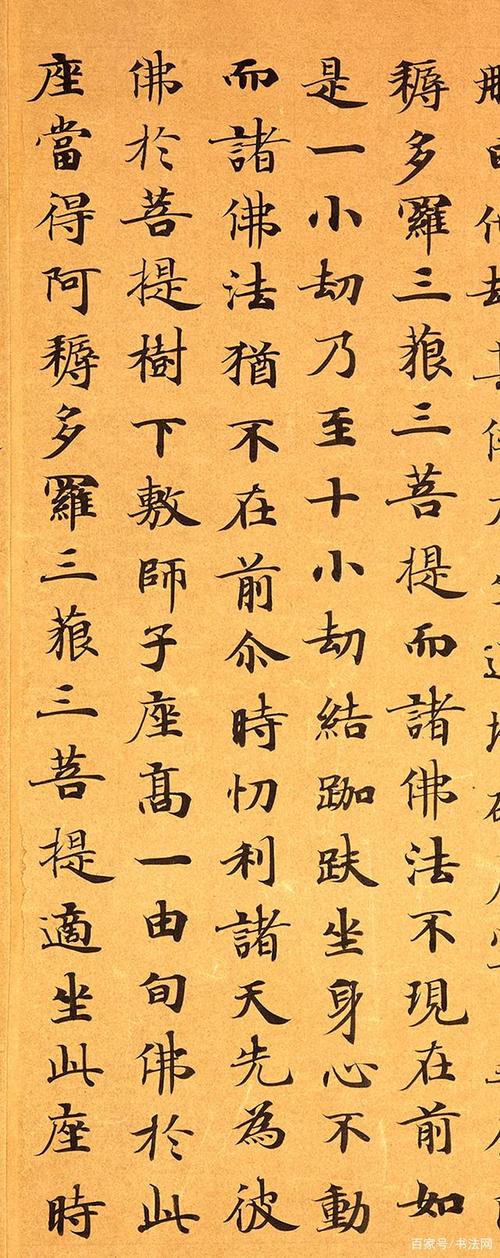 耨多羅三藐三菩提而諸佛法不現在前如
是一小劫乃至十小劫結跏趺坐身心不動
而諸佛法猶不在前尒時忉利諸天先為彼
佛於菩提樹下敷師子座髙一由旬佛於此
座當得阿耨多羅三藐三菩提適坐此座時
百家号/书法网